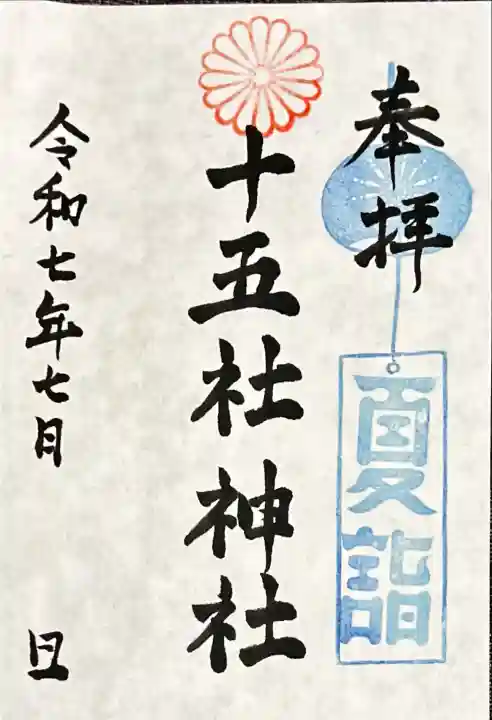 奉拝
夏詣
十五社神社
令和七年七月
日